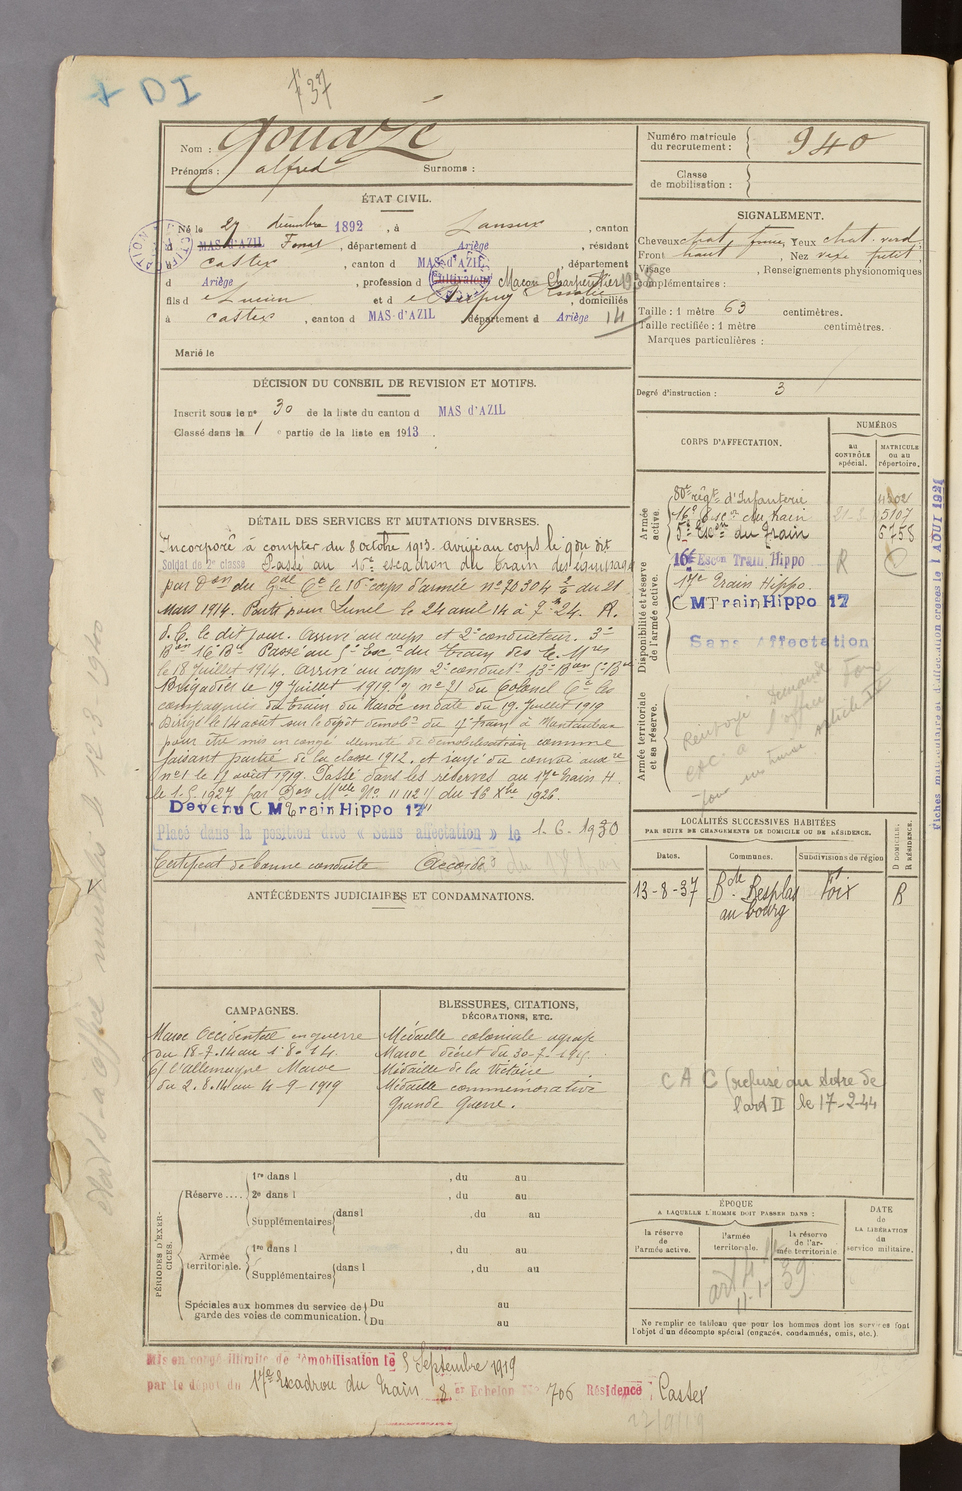 + DI
Nom : Gouazé
Prénoms : alfred Surnoms :
Numéro matricule du recrutement : 940
Classe de mobilisation :
ÉTAT CIVIL.
Né le 27 décembre 1892, à Lanoux, canton
d MAS-D'AZIL Fossat, département d Ariège, résidant
à Castex, canton d MAS-d'AZIL, département
d Ariège, profession d Cultivateur Maçon Charpentier 1938
fils d e Lucien et d e Rosalie, domiciliés
à Castex, canton d MAS-d'AZIL, département d Ariège 14
Marié le
SIGNALEMENT.
Cheveux chat. foncé, Yeux chat. verd.
Front haut, Nez petit
Visage , Renseignements physionomiques
complémentaires :
Taille : 1 mètre 63 centimètres.
Taille rectifiée : 1 mètre centimètres.
Marques particulières :
Degré d'instruction : 3
DÉCISION DU CONSEIL DE REVISION ET MOTIFS.
Inscrit sous le n° 30 de la liste du canton d MAS d'AZIL
Classé dans la 1 e partie de la liste en 1913.
CORPS D'AFFECTATION.
NUMÉROS
au CONTRÔLE spécial.
MATRICULE ou au répertoire.
Armée active.
80e régt d'Infanterie
16e Escon du train 21-2 5107
5e Escon du Train 6758
Disponibilité et réserve de l'armée active.
16e Escon Train Hippo R
17e Train Hippo.
CM Train Hippo 17
Sans Affectation
Armée territoriale et sa réserve.
Fiches matriculaire et d'affectation créées le 1 AOUT 1921
DÉTAIL DES SERVICES ET MUTATIONS DIVERSES.
Incorporé à compter du 8 octobre 1913. arrivé au corps le 9 ou dit
Soldat de 2e classe Passé au 16e escadron du train des équipages
par Don du Gal Ct le 16e corps d'armée n° 20304 2/6 du 21
Mars 1914. Parti pour Lunel le 24 avril 14 à 7h 24. R.
d. C. le dit jour. Arrivé au corps et 2e conducteur. 3e
Bon 16e Bie Passé au 5e Escn du Train des E. Mres
le 18 Juillet 1914. Arrivé au corps 2e conduct. 13e Bon 5e Bie
Brigadier le 19 Juillet 1919. n° 21 du Colonel Ct les
compagnies du train du Maroc en date du 19 Juillet 1919
Dirigé le 14 août sur le dépôt démobre du 17e train à Montauban
pour être mis en congé illimité de démobilisation comme
faisant partie de la classe 1912. et rayé du convoi auxre
n°1 le 17 août 1919. Passé dans les réserves au 17e Train H.
le 1.5.1927 par Don Mlle N° 11112 1/1 du 16 Xbre 1926.
Devenu CM Train Hippo 17
Placé dans la position dite « Sans affectation » le 1.6.1930
Certificat de bonne conduite Accordé
ANTÉCÉDENTS JUDICIAIRES ET CONDAMNATIONS.
LOCALITÉS SUCCESSIVES HABITÉES
PAR SUITE DE CHANGEMENTS DE DOMICILE OU DE RÉSIDENCE.
Dates. Communes. Subdivisions de région D DOMICILE. R RÉSIDENCE.
13-8-37 Bde Besplas au bourg Foix R
CAC (refusé au titre de
l'art II le 17-2-44
CAMPAGNES.
Maroc Occidental en guerre
du 18-7-14 au 1-8-14.
c/ l'Allemagne Maroc
du 2.8.14 au 4-9-1919
BLESSURES, CITATIONS,
DÉCORATIONS, ETC.
Médaille coloniale agrafe
Maroc décret du 30-7-1915.
Médaille de la Victoire.
Médaille commémorative
Grande Guerre.
PÉRIODES D'EXERCICES.
Réserve....
1re dans l , du au
2e dans l , du au
Supplémentaires dans l , du au
Armée territoriale.
1re dans l , du au
Supplémentaires dans l , du au
Spéciales aux hommes du service de garde des voies de communication.
Du au
Du au
ÉPOQUE
A LAQUELLE L'HOMME DOIT PASSER DANS :
la réserve de l'armée active.
l'armée territoriale.
la réserve de l'armée territoriale.
DATE de LA LIBÉRATION du service militaire.
Ne remplir ce tableau que pour les hommes dont les services font
l'objet d'un décompte spécial (engagés, condamnés, omis, etc.).
Mis en congé illimité de démobilisation le 5 Septembre 1919
par le dépôt du 17e Escadron du Train 8 er Echelon N° 706 Résidence : Castex